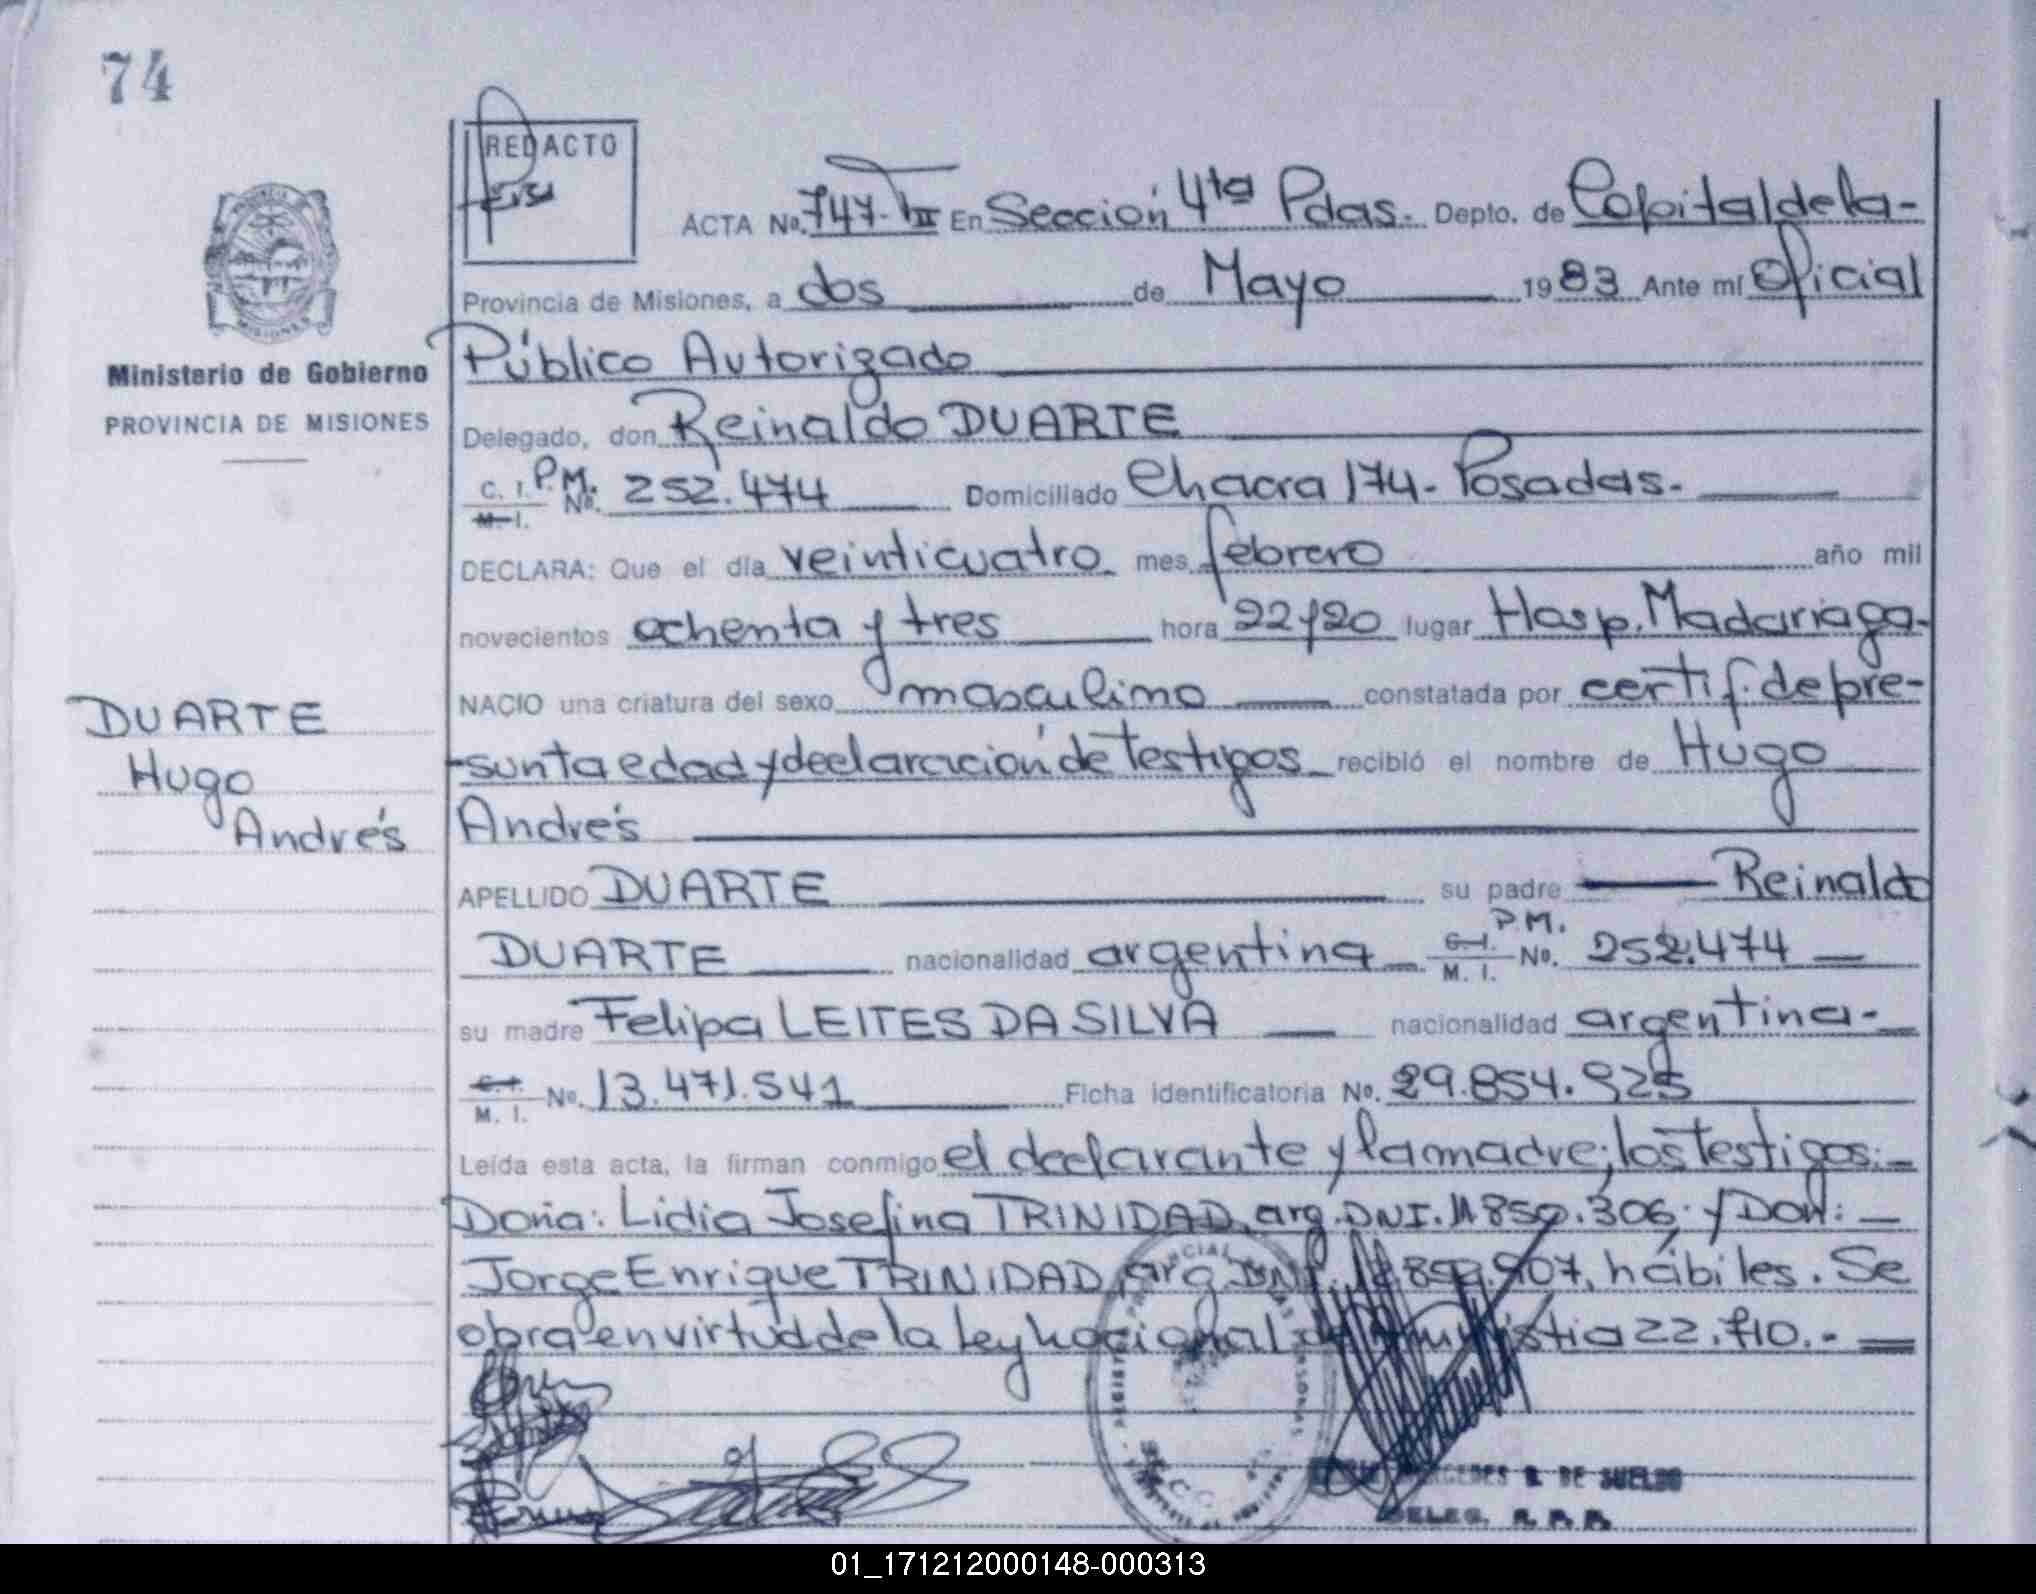 74
REDACTO
ACTA No. 747-TºII En Sección 4ta Pdas. Depto. de Capital de la-
Provincia de Misiones, a dos de Mayo 1983 Ante mí Oficial
Público Autorizado
Ministerio de Gobierno
PROVINCIA DE MISIONES
Delegado, don Reinaldo DUARTE
C. I. M. I. P.M. No. 252.474 Domiciliado Chacra 174- Posadas.
DECLARA: Que el día veinticuatro mes febrero año mil
novecientos ochenta y tres hora 22y20 lugar Hosp. Madariaga-
NACIO una criatura del sexo masculino constatada por certif. de pre-
-sunta edad y declaración de testigos recibió el nombre de Hugo
Andrés
DUARTE
Hugo
Andrés
APELLIDO DUARTE su padre Reinaldo
DUARTE nacionalidad argentina C. I. M. I. P.M. No. 252.474
su madre Felipa LEITES DA SILVA nacionalidad argentina-
C. I. M. I. No. 13.471.541 Ficha identificatoria No. 29.854.925
Leída esta acta, la firman conmigo el declarante y la madre; los testigos:
Doña: Lidia Josefina TRINIDAD, arg. DNI. 11.850.306. y Don:
Jorge Enrique TRINIDAD, arg. DNI. 907, hábiles. Se
obra en virtud de la Ley Nacional de Amnistia 22.710.-
REGISTRO PROVINCIAL DE LAS PERSONAS
MERCEDES B. DE SUELDO
DELEG. R. P. P.
01_171212000148-000313